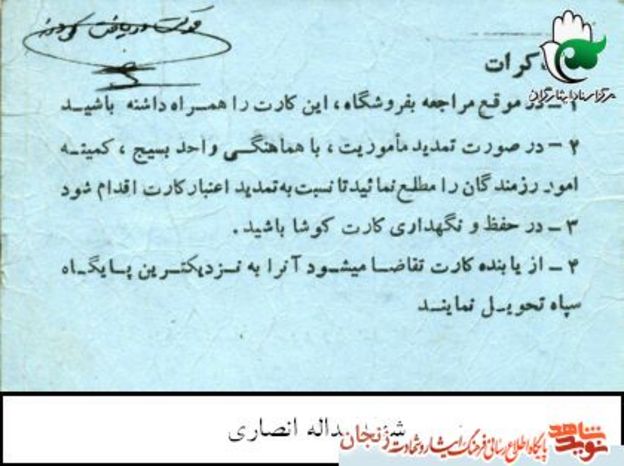 تذکرات
۱ـ در موقع مراجعه بفروشگاه، این کارت را همراه داشته باشید
۲ـ در صورت تمدید مأموریت، با هماهنگی واحد بسیج، کمیته
امور رزمندگان را مطلع نمائید تا نسبت به تمدید اعتبار کارت اقدام شود
۳ـ در حفظ و نگهداری کارت کوشا باشید.
۴ـ از یابنده کارت تقاضا میشود آنرا به نزدیکترین پایگاه
سپاه تحویل نمایند
مرکز اسناد ایثارگران
یداله انصاری
نوید شاهد
پایگاه اطلاع رسانی فرهنگ ایثار و شهادت زنجان